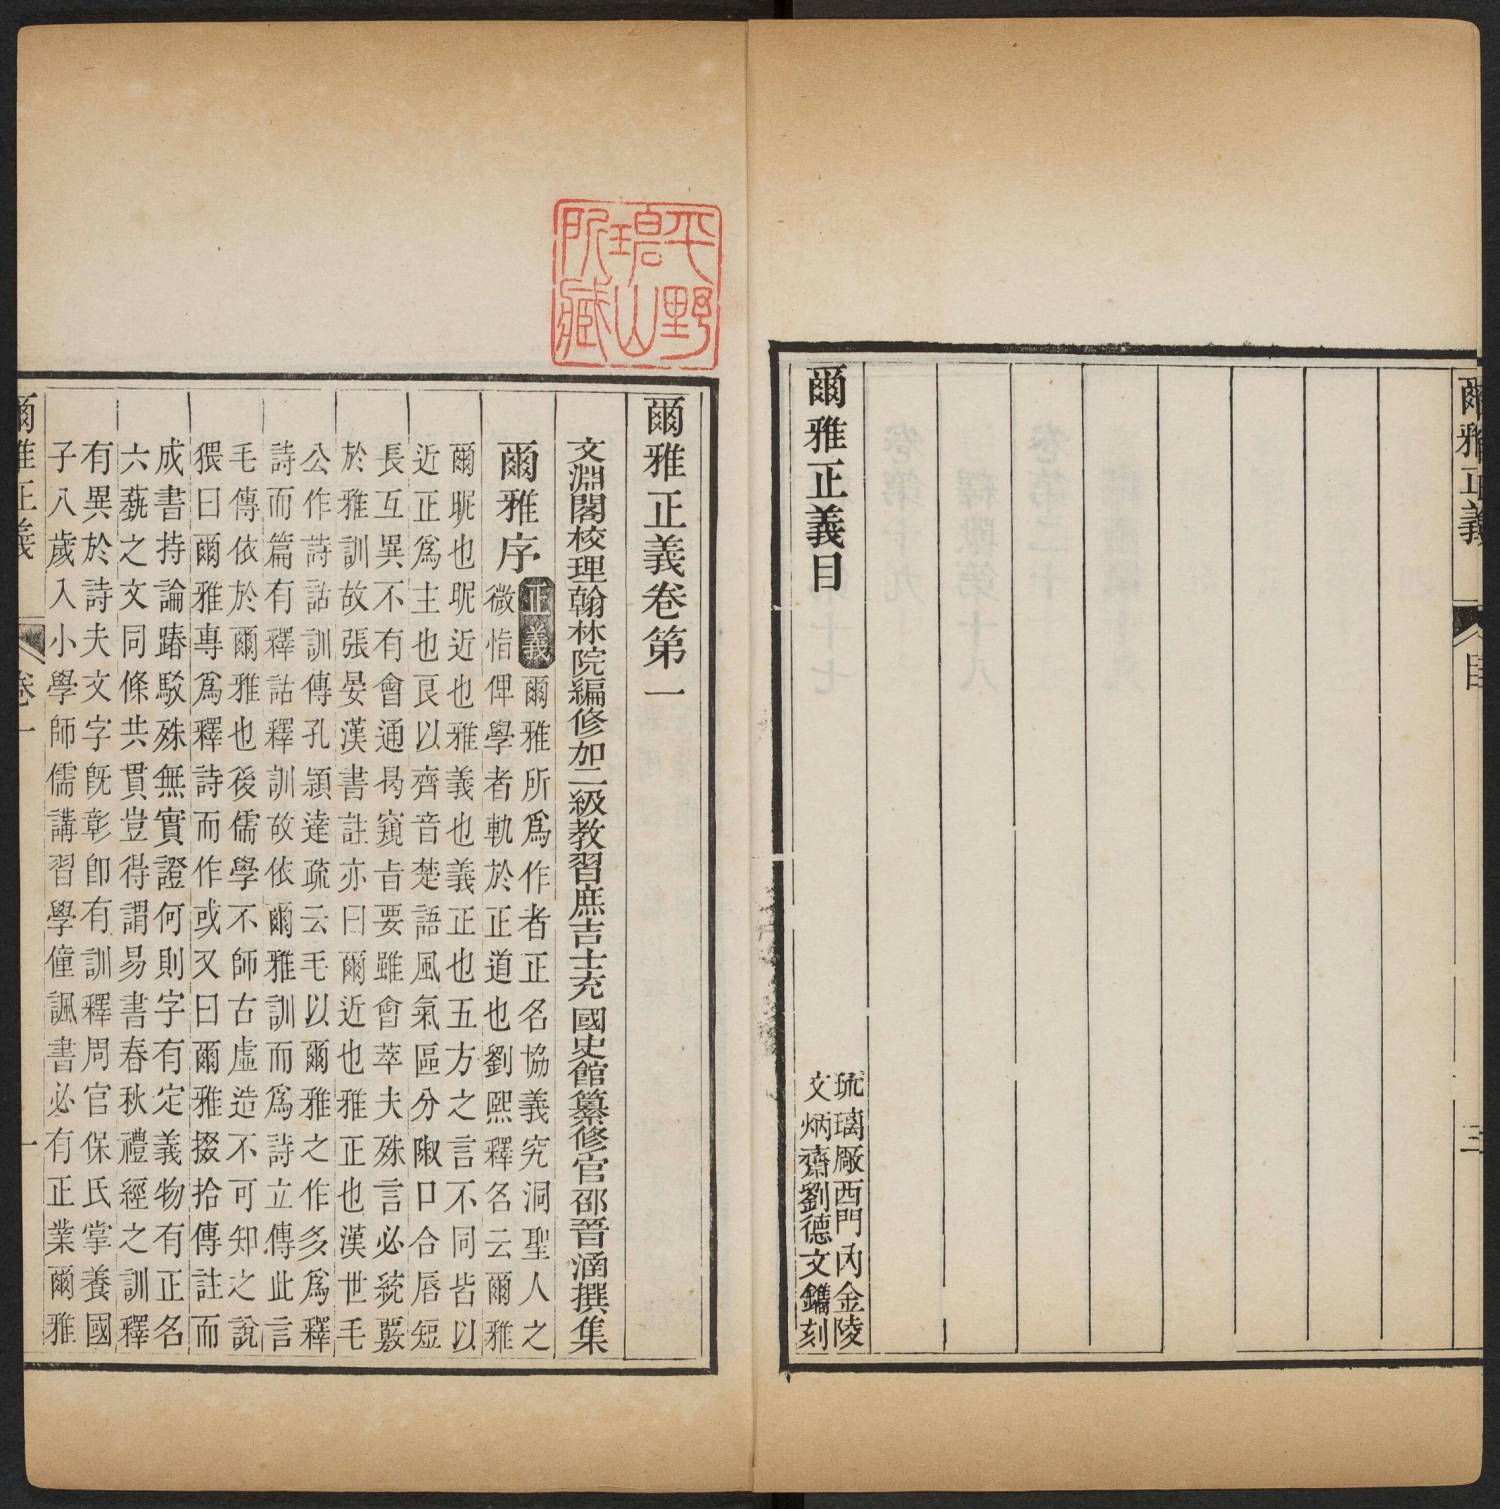 爾雅正義
目
三
爾雅正義目
琉璃厰西門内金陵
文炳齋劉德文鐫刻
平野
碧山
所藏
爾雅正義卷第一
文淵閣校理翰林院編修加二級教習庶吉士充國史館纂修官邵晉涵撰集
爾雅序
正義
爾雅所爲作者正名協義究洞聖人之
微恉俾學者軌於正道也劉熙釋名云爾雅
爾昵也昵近也雅義也義正也五方之言不同皆以
近正爲主也艮以齊音楚語風氣區分陬口合唇短
長互異不有會通曷窺㫖要雖會萃夫殊言必統覈
於雅訓故張晏漢書註亦曰爾近也雅正也漢世毛
公作詩詁訓傳孔頴達疏云毛以爾雅之作多爲釋
詩而篇有釋詁釋訓故依爾雅訓而爲詩立傳此言
毛傳依於爾雅也後儒學不師古虛造不可知之說
猥曰爾雅專爲釋詩而作或又曰爾雅掇拾傳註而
成書持論踳駮殊無實證何則字有定義物有正名
六蓺之文同條共貫豈得謂易書春秋禮經之訓釋
有異於詩夫文字旣彰卽有訓釋周官保氏掌養國
子八歲入小學師儒講習學僮諷書必有正業爾雅
爾雅正義
卷一
一